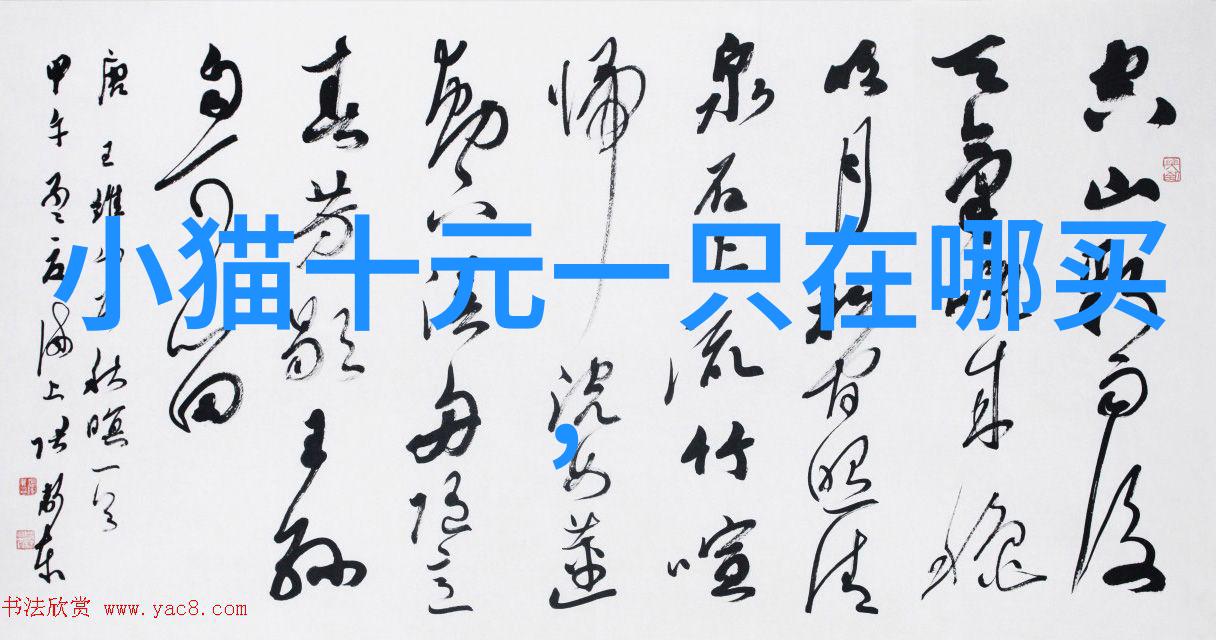 小猫十元一只在哪买
,
空山新雨後
天氣晚来
明月松間照清
泉石上流竹喧
歸浣女蓮
動下漁舟隨意
春芳歇王孫
自可留
唐王維山居秋暝一首
甲午孟夏海上張東
书法欣赏 www.yac8.com